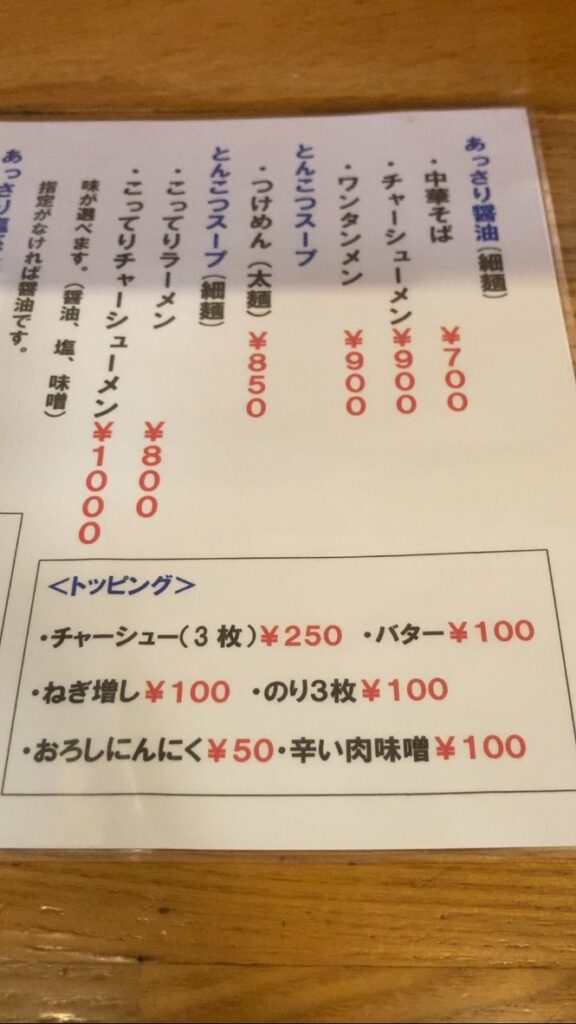 あっさり醤油（細麺）
・中華そば ￥700
・チャーシューメン ￥900
・ワンタンメン ￥900
とんこつスープ
・つけめん（太麺） ￥850
とんこつスープ（細麺）
・こってりラーメン ￥800
・こってりチャーシューメン ￥1000
味が選べます。（醤油、塩、味噌）
指定がなければ醤油です。
あっさり塩
＜トッピング＞
・チャーシュー（３枚）￥250 ・バター￥100
・ねぎ増し￥100 ・のり３枚￥100
・おろしにんにく￥50・辛い肉味噌￥100